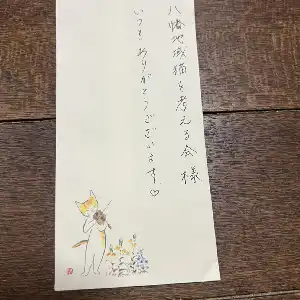 八幡地域猫を考える会様
いつもありがとうございます♡